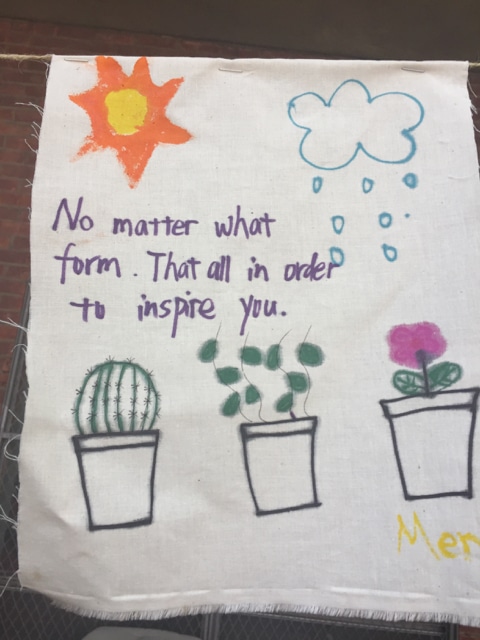 No matter what
form. That all in order
to inspire you.
Mer